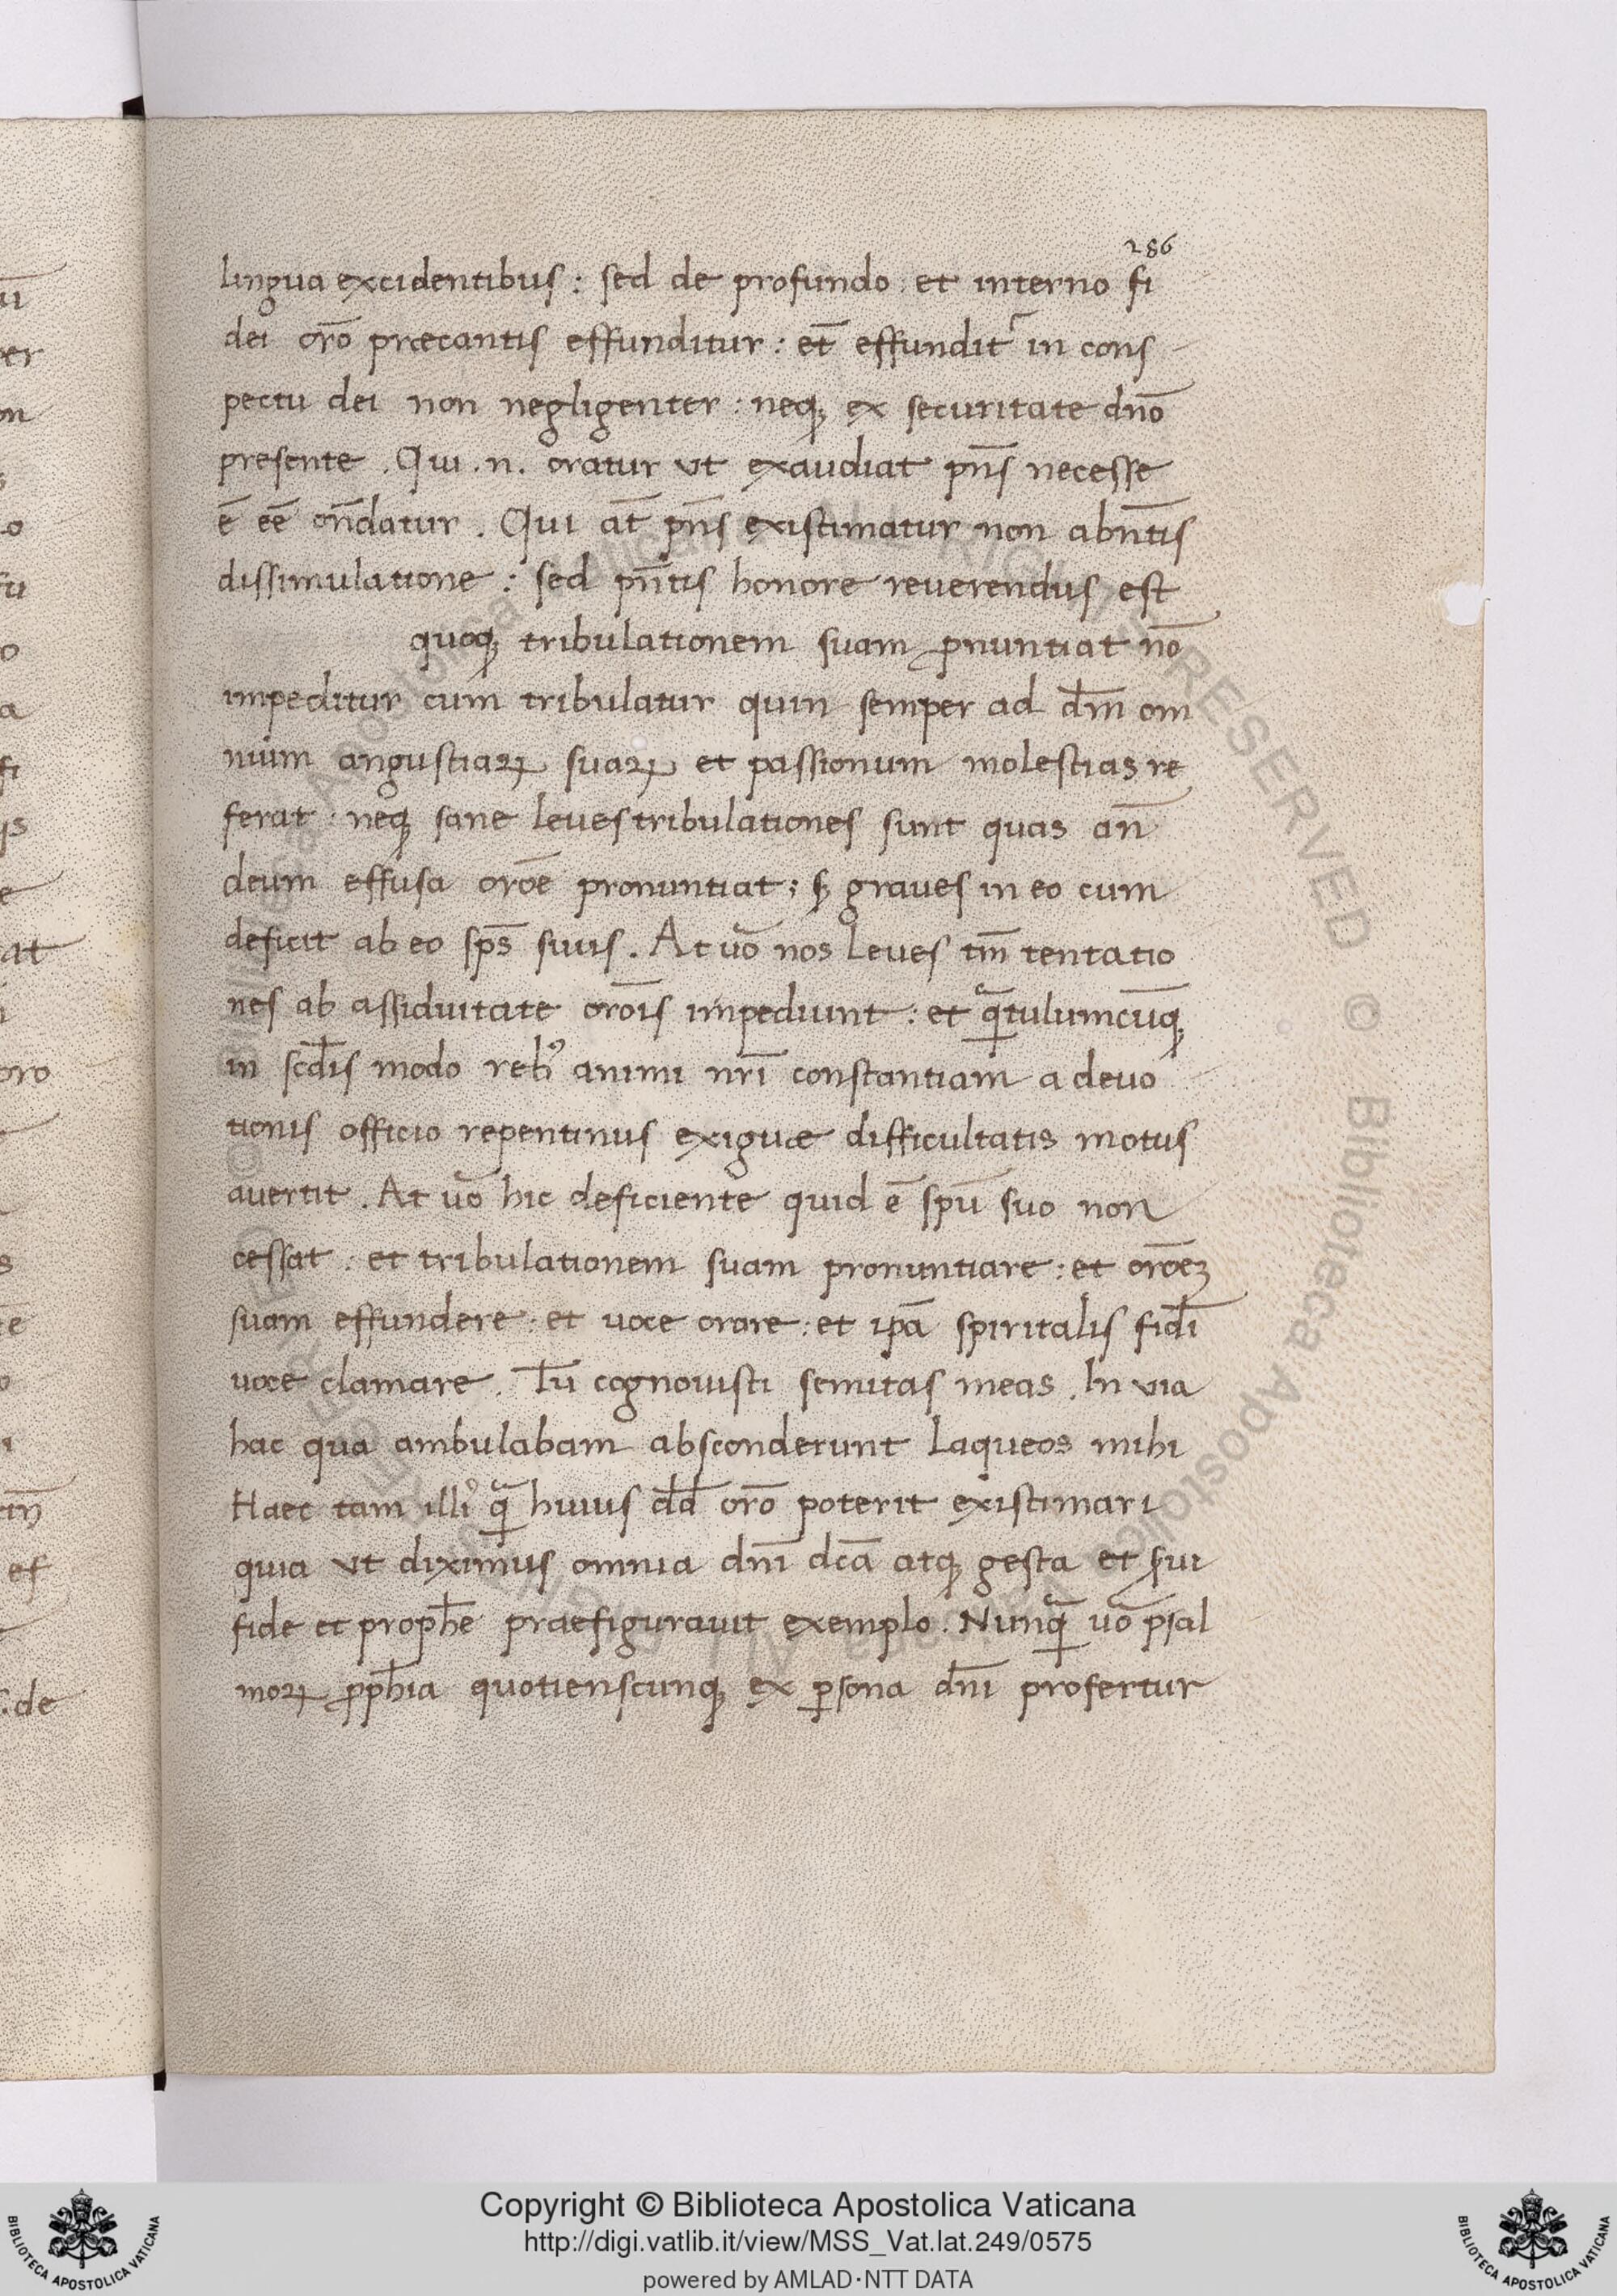 286
lingua excidentibus : sed de profundo : et interno fi
dei orō præcantis effunditur : et̄ effundit᷑ in cons
pectu dei non negligenter : neqꝫ ex securitate dn̄o
presente . Qui .n. oratur ut exaudiat pn̄s necesse
ē eē on̄datur . Qui at̄ pn̄s existimatur non abn̄tis
dissimulatione : sed pn̄tis honore reuerendus est
quoqꝫ tribulationem suam ꝓnuntiat nō
impeditur cum tribulatur quin semper ad dm̄ om
nium angustiaꝝ suaꝝ et passionum molestias re
ferat : neqꝫ sane leues tribulationes sunt quas an̄
deum effusa orōe pronuntiat ; sꝫ graues in eo cum
deficit ab eo sps̄ suus . At uō nos leues tm̄ tentatio
nes ab assiduitate orōis impediunt : et qᷓtulumcūqꝫ
in scd̄is modo rebꝰ animi nr̄i constantiam a deuo
tionis officio repentinus exiguæ difficultatis motus
auertit . At uō hic deficiente quid ē spū suo non
cessat : et tribulationem suam pronuntiare : et orōeꝫ
suam effundere : et uoce orare : et ipā spiritalis fid̄i
uoce clamare . Tū cognouisti semitas meas . In uia
hac qua ambulabam absconderunt laqueos mihi
Haec tam illiꝰ qᷓ huius dd̄ orō poterit existimari
quia ut diximus omnia dn̄i dc̄a atqꝫ gesta et sui
fide et proph̄e praefigurauit exemplo . Nunqᷓ uō psal
moꝝ ꝓph̄ia quotienscunqꝫ ex ꝑsona dn̄i profertur
Copyright © Biblioteca Apostolica Vaticana
http://digi.vatlib.it/view/MSS_Vat.lat.249/0575
powered by AMLAD·NTT DATA
BIBLIOTECA APOSTOLICA VATICANA
BIBLIOTECA APOSTOLICA VATICANA